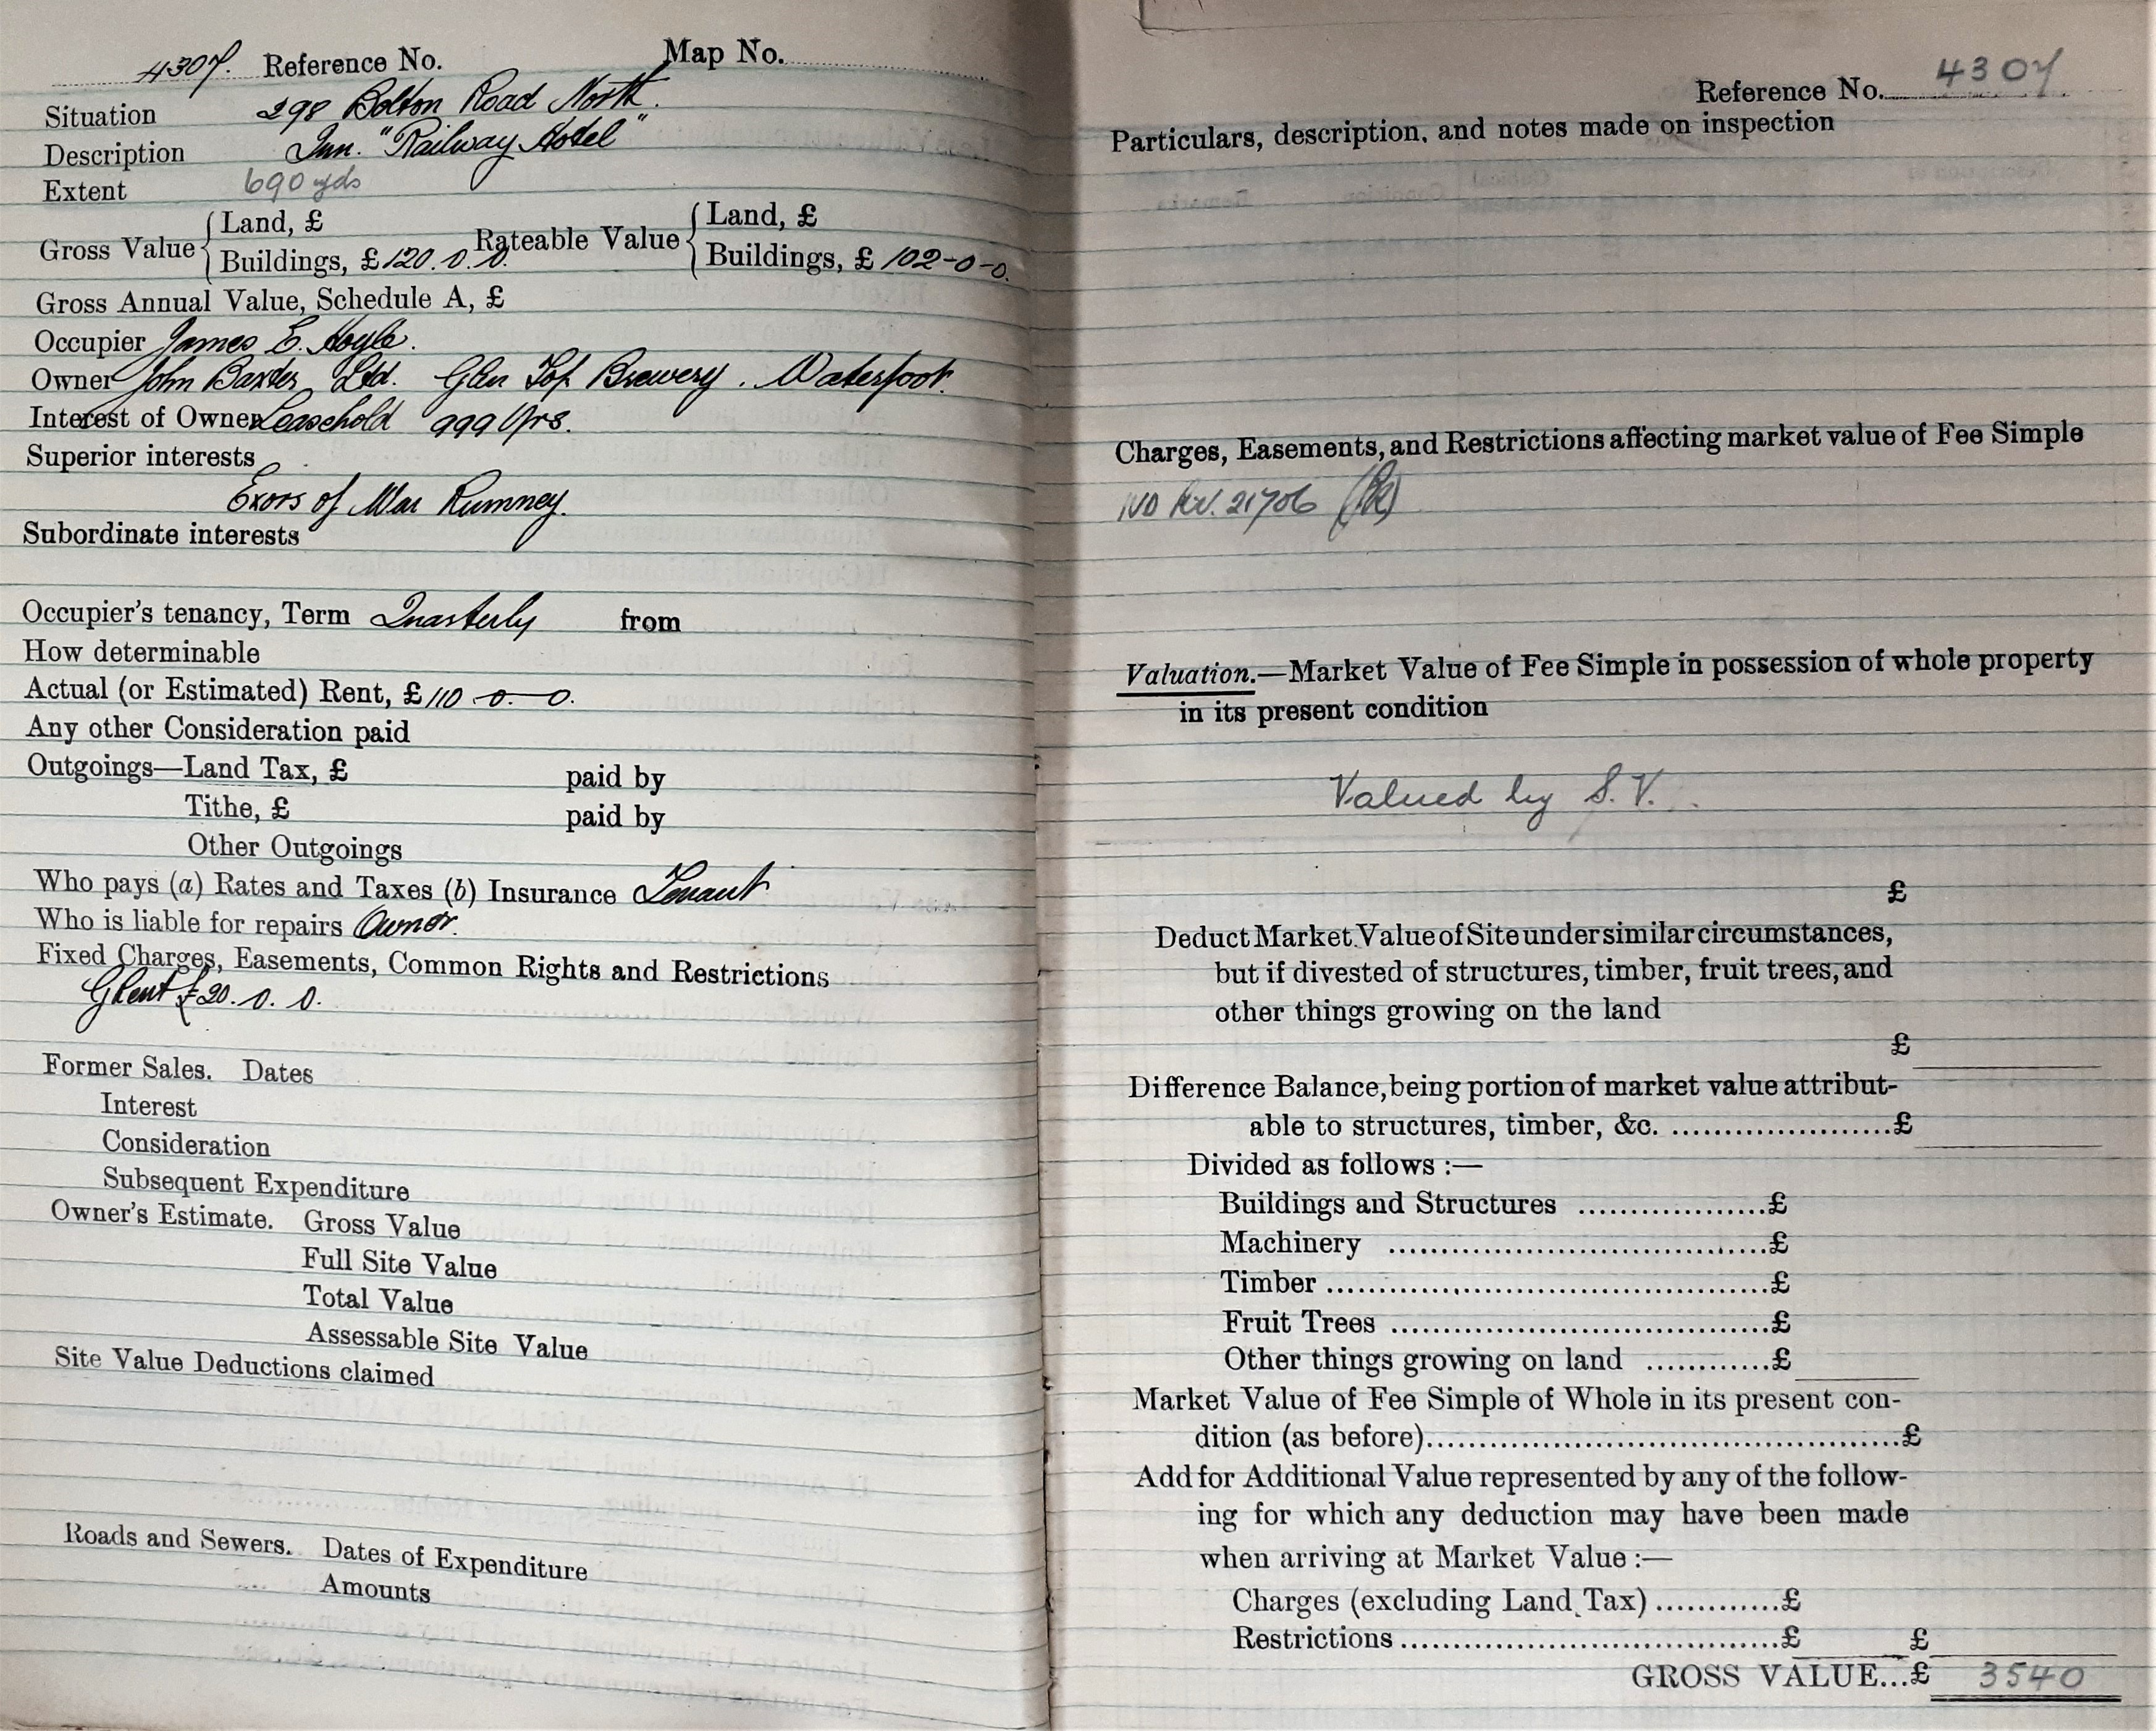 4307. Reference No. Map No.
Situation 298 Bolton Road North.
Description Inn. "Railway Hotel"
Extent 690 yds
Gross Value { Land, £ Rateable Value { Land, £
Buildings, £ 120. 0. 0. Buildings, £ 102-0-0.
Gross Annual Value, Schedule A, £
Occupier James E. Hoyle.
Owner John Baxter Ltd. Glen Top Brewery. Waterfoot.
Interest of Owner Leasehold 999 Yrs.
Superior interests
Exors of Rumney.
Subordinate interests
Occupier's tenancy, Term Quarterly from
How determinable
Actual (or Estimated) Rent, £ 110-0-0.
Any other Consideration paid
Outgoings—Land Tax, £ paid by
Tithe, £ paid by
Other Outgoings
Who pays (a) Rates and Taxes (b) Insurance Tenant
Who is liable for repairs Owner.
Fixed Charges, Easements, Common Rights and Restrictions
GRent £20. 0. 0.
Former Sales. Dates
Interest
Consideration
Subsequent Expenditure
Owner's Estimate. Gross Value
Full Site Value
Total Value
Assessable Site Value
Site Value Deductions claimed
Roads and Sewers. Dates of Expenditure
Amounts
Reference No. 4307
Particulars, description, and notes made on inspection
Charges, Easements, and Restrictions affecting market value of Fee Simple
21706
Valuation.—Market Value of Fee Simple in possession of whole property
in its present condition
Valued by S.V.
£
Deduct Market Value of Site under similar circumstances,
but if divested of structures, timber, fruit trees, and
other things growing on the land
£
Difference Balance, being portion of market value attribut-
able to structures, timber, &c. ......................£
Divided as follows :—
Buildings and Structures ...................£
Machinery ......................................£
Timber ............................................£
Fruit Trees ......................................£
Other things growing on land ............£
Market Value of Fee Simple of Whole in its present con-
dition (as before)................................................£
Add for Additional Value represented by any of the follow-
ing for which any deduction may have been made
when arriving at Market Value :—
Charges (excluding Land Tax) ............£
Restrictions ......................................£ £
GROSS VALUE...£ 3540